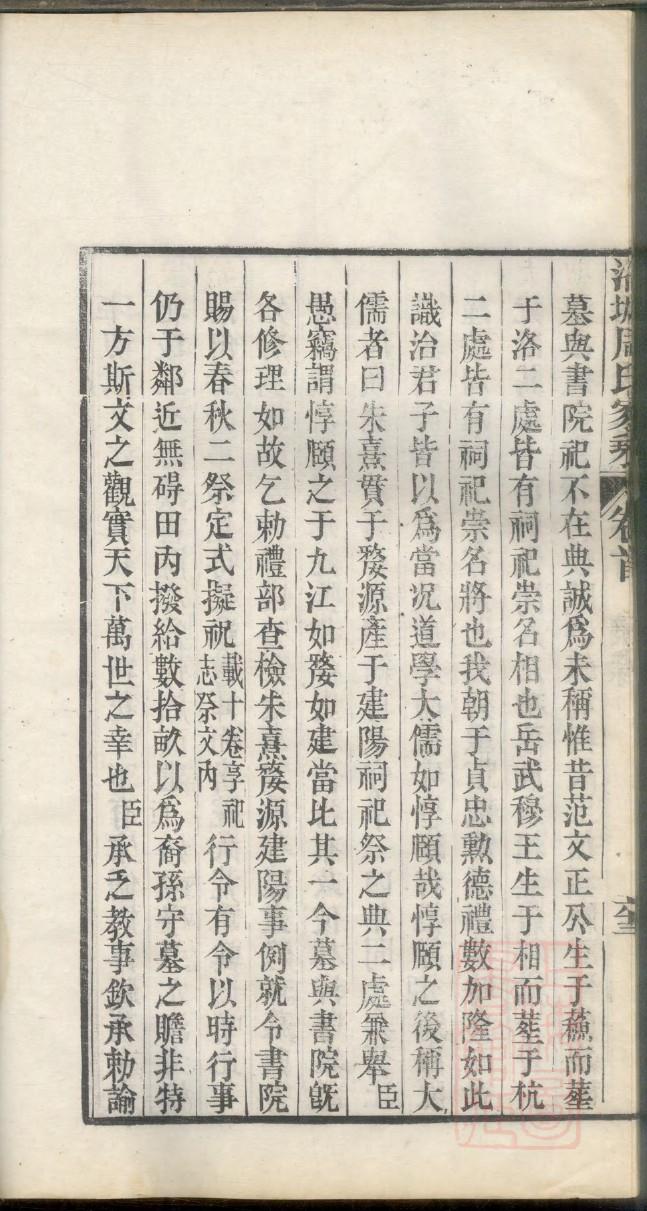 墓與書院祀不在典誠爲未稱惟昔范文正公生于蘇而塟
于洛二處皆有祠祀崇名相也岳武穆王生于相而塟于杭
二處皆有祠祀崇名將也我朝于貞忠勲德禮數加隆如此
識治君子皆以爲當况道學大儒如惇頤哉惇頤之後稱大
儒者曰朱熹貫于婺源產于建陽祠祀祭之典二處兼舉臣
愚竊謂惇頤之于九江如婺如建當比其一今墓與書院旣
各修理如故乞勅禮部查檢朱熹婺源建陽事例就令書院
賜以春秋二祭定式擬祝載十卷享祀志祭文內行令有令以時行事
仍于鄰近無碍田內撥給數拾畝以爲裔孫守墓之贍非特
一方斯文之觀實天下萬世之幸也臣承乏教事欽承勅諭
周氏家乘 卷首